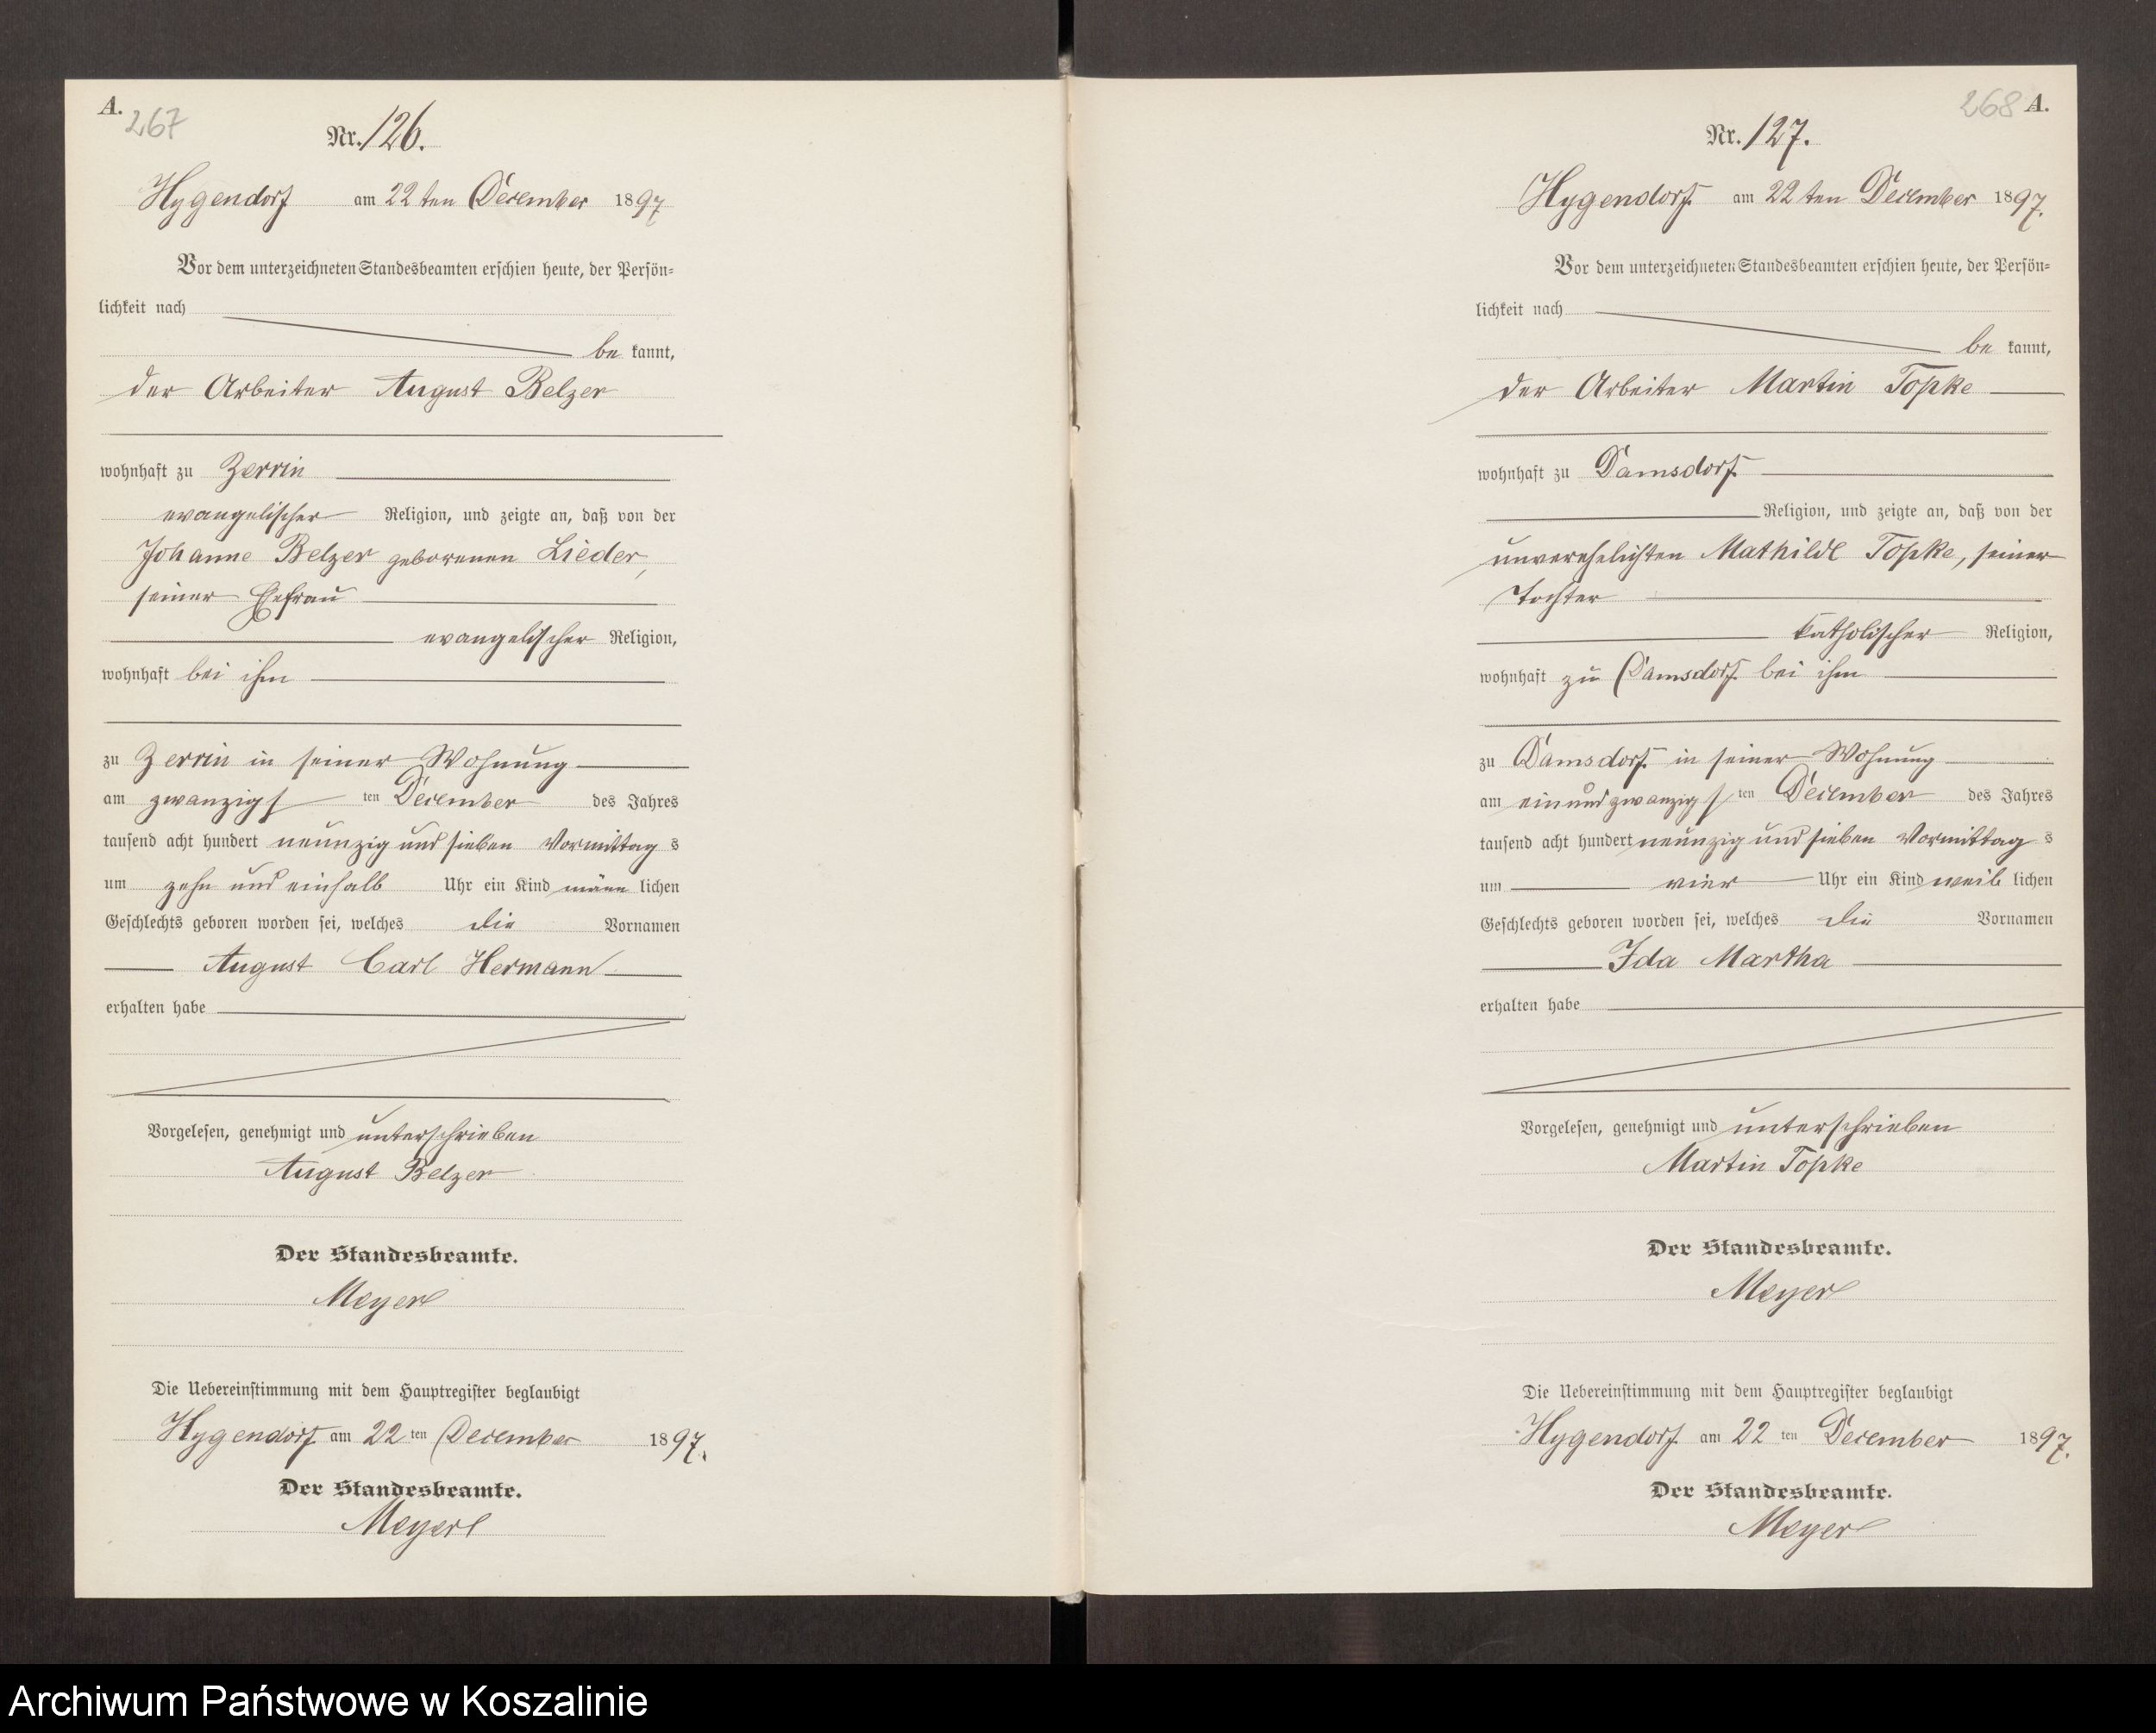 A.
267
Nr. 126.
Hygendorf am 22 ten December 1897
Vor dem unterzeichneten Standesbeamten erschien heute, der Persön-
lichkeit nach
be kannt,
der Arbeiter August Belzer
wohnhaft zu Zerrin
evangelischer Religion, und zeigte an, daß von der
Johanne Belzer geborenen Lieder,
seiner Ehefrau
evangelischer Religion,
wohnhaft bei ihm
zu Zerrin in seiner Wohnung
am zwanzigs ten December des Jahres
tausend acht hundert neunzig und sieben Vormittag s
um zehn und einhalb Uhr ein Kind männ lichen
Geschlechts geboren worden sei, welches die Vornamen
August Carl Hermann
erhalten habe
Vorgelesen, genehmigt und unterschrieben
August Belzer
Der Standesbeamte.
Meyer
Die Uebereinstimmung mit dem Hauptregister beglaubigt
Hygendorf am 22 ten December 1897.
Der Standesbeamte.
Meyer
268 A.
Nr. 127.
Hygendorf am 22 ten December 1897.
Vor dem unterzeichneten Standesbeamten erschien heute, der Persön-
lichkeit nach
be kannt,
der Arbeiter Martin Topke
wohnhaft zu Damsdorf
Religion, und zeigte an, daß von der
unverehelichten Mathilde Topke, seiner
Tochter
katholischer Religion,
wohnhaft zu Damsdorf bei ihm
zu Damsdorf in seiner Wohnung
am einundzwanzigs ten December des Jahres
tausend acht hundert neunzig und sieben Vormittag s
um vier Uhr ein Kind weib lichen
Geschlechts geboren worden sei, welches die Vornamen
Ida Martha
erhalten habe
Vorgelesen, genehmigt und unterschrieben
Martin Topke
Der Standesbeamte.
Meyer
Die Uebereinstimmung mit dem Hauptregister beglaubigt
Hygendorf am 22 ten December 1897.
Der Standesbeamte.
Meyer
Archiwum Państwowe w Koszalinie